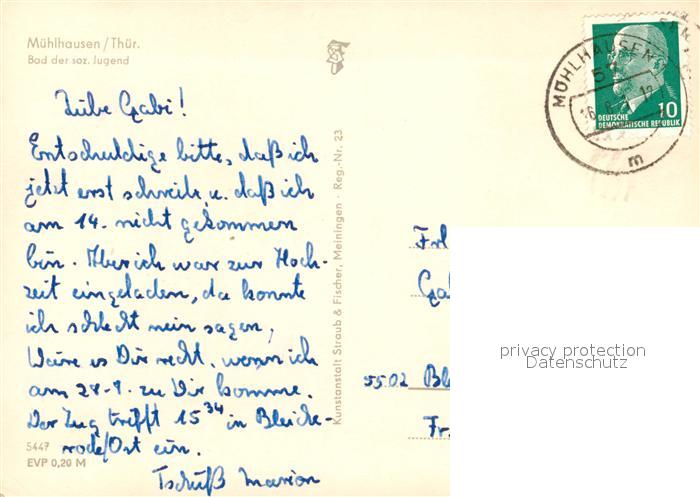 Mühlhausen/Thür.
Bad der soz. Jugend
Liebe Gabi!
Entschuldige bitte, daß ich
jetzt erst schreib u. daß ich
am 14. nicht gekommen
bin. Aber ich war zur Hoch-
zeit eingeladen, da konnte
ich schlecht nein sagen,
Wäre es Dir recht, wenn ich
am 28.8. zu Dir komme.
Der Zug trifft 15 34 in Bleiche-
rode/Ost ein.
Tschüß Marion
5447
EVP 0,20 M
Kunstanstalt Straub & Fischer, Meiningen · Reg.-Nr. 23
MÜHLHAUSEN
10
DEUTSCHE
DEMOKRATISCHE REPUBLIK
m
Frl
Gab
5502 Ble
Fr.
privacy protection
Datenschutz